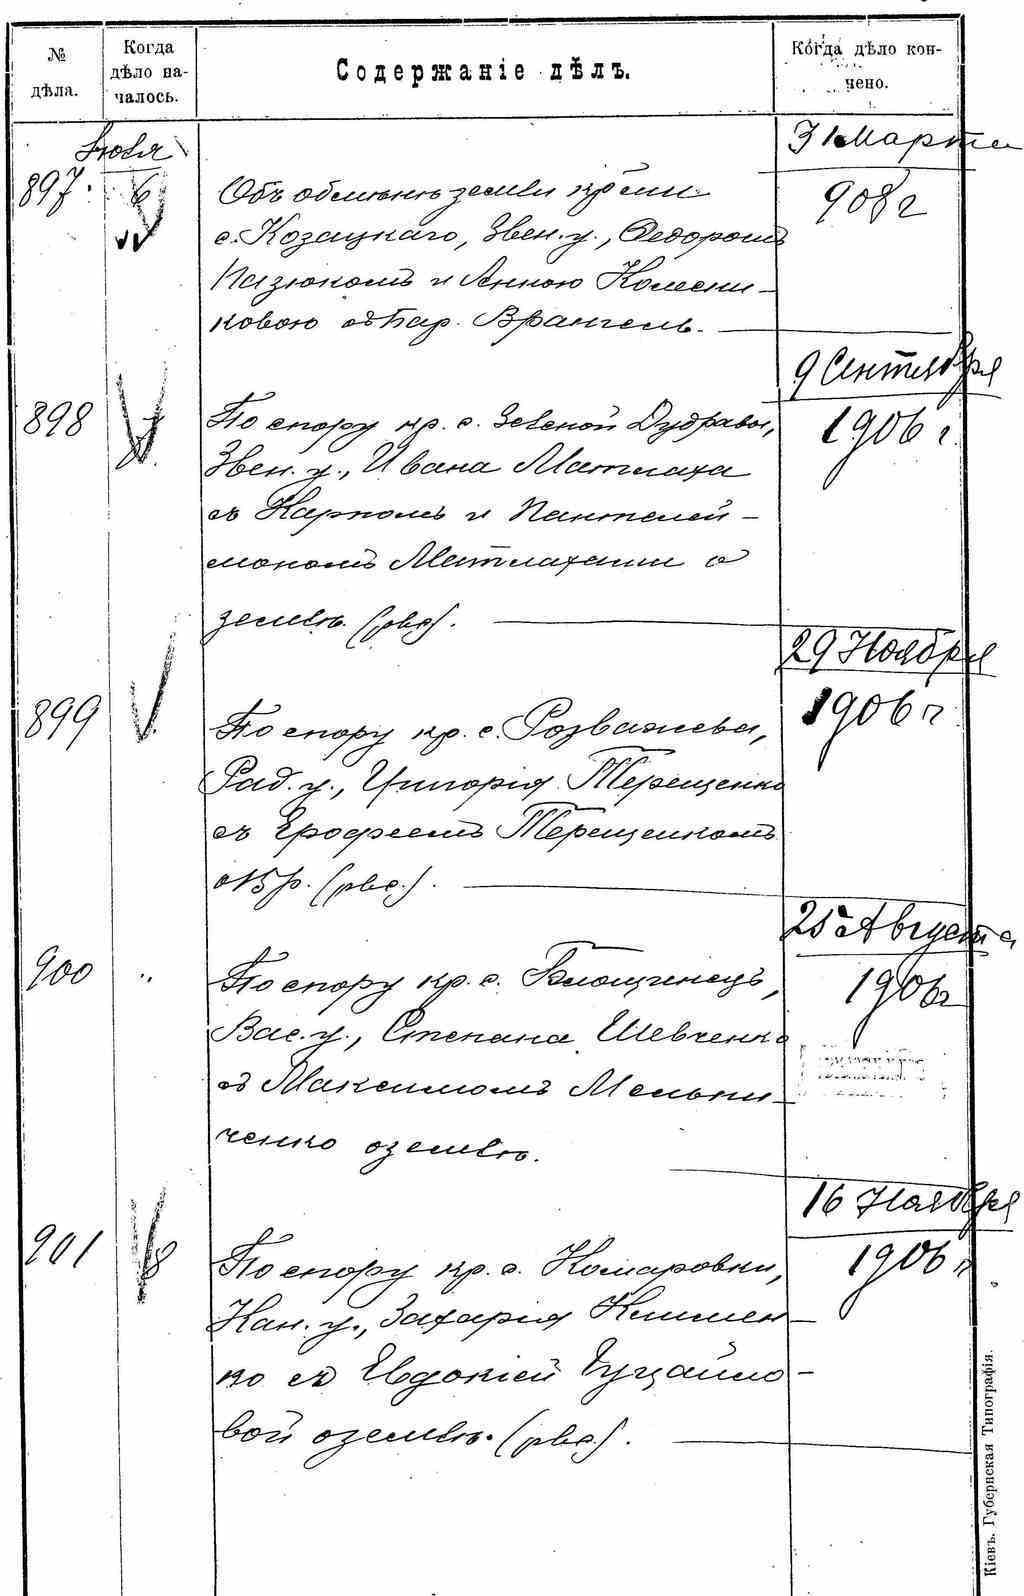 № дѣла.
Когда дѣло началось.
Содержаніе дѣлъ.
Когда дѣло кончено.
Іюля
31 Марта
897. 6
908 г
Объ обмѣнѣ земли кр-ми
с. Козацкаго, Звен. у., Ѳедоромъ
Пазюкомъ и Анною Колесни-
ковою съ бар. Врангель.
9 Сентября
898
1906 г.
По спору кр. с. Зеленой Дубравы,
Звен. у., Ивана Матлаха
съ Карпомъ и Пантелей-
мономъ Матлахами о
землѣ.
29 Ноября
899
1906 г
По спору кр. с. Розважева,
Рад. у., Григорія Терещенко
съ Ерофеемъ Терещенкомъ
о 15 р.
25 Августа
900
1906 г
По спору кр. с. Блощинецъ,
Вас. у., Степана Шевченко
съ Максимомъ Мельни-
ченко о землѣ.
16 Ноября
901 8
1906 г
По спору кр. с. Комаровки,
Кан. у., Захарія Климен-
ко съ Евдокіей
вой о землѣ.
Кіевъ. Губернская Типографія.